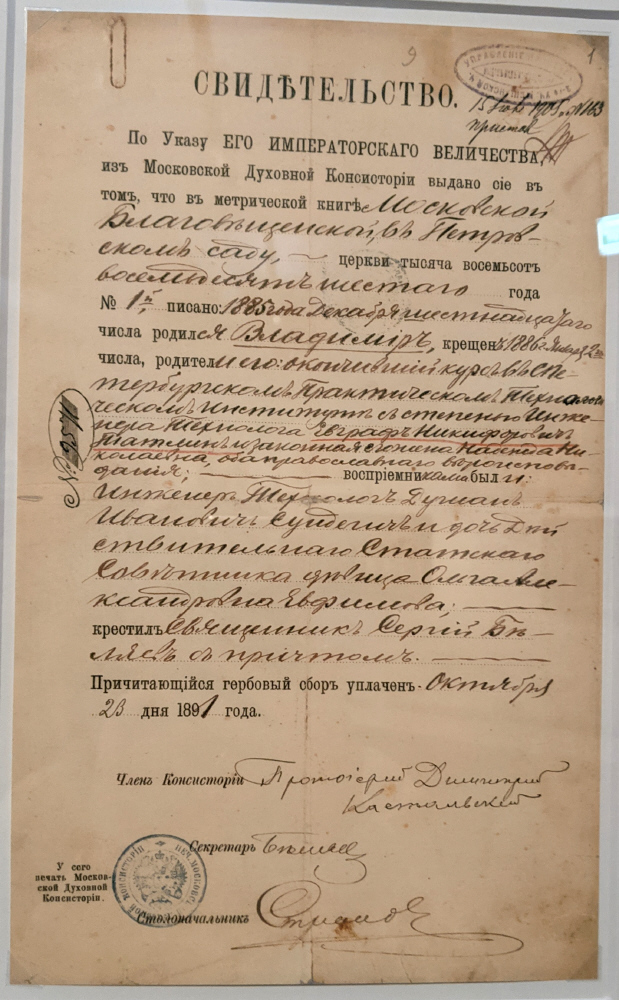 9
1
УПРАВЛЕНІЕ
СВИДѢТЕЛЬСТВО.
15 1905 г. № 163
Приставъ
По Указу ЕГО ИМПЕРАТОРСКАГО ВЕЛИЧЕСТВА,
изъ Московской Духовной Консисторіи выдано сіе въ
томъ, что въ метрической книгѣ Московской
Благовѣщенской, въ Петров-
скомъ саду, — церкви тысяча восемьсотъ
восемьдесятъ шестаго года
№ 1й писано: 1885 года Декабря шестнадцатаго
числа родился Владиміръ, крещенъ 1886 г. Января 2го
числа, родители его: окончившій курсъ въ С.Пе-
тербургскомъ Практическомъ Технологи-
ческомъ Институтѣ съ степенью Инже-
нера Технолога Евграфъ Никифоровичъ
Татлинъ и законная жена Надежда Ни-
колаевна, оба православнаго вѣроисповѣ-
данія; — воспріемниками были:
Инженеръ Технологъ Душанъ
Ивановичъ и дочь Дѣй
ствительнаго Статскаго
Совѣтника дѣвица Ольга Але-
ксандровна Евфимова; —
крестилъ Священникъ Сергій Бѣ-
ляевъ съ причтомъ. —
Причитающійся гербовый сборъ уплаченъ. Октября
23 дня 1891 года.
№
Членъ Консисторіи Протоіерей Димитрій
Кастальскій
Секретарь
У сего
печать Москов-
ской Духовной
Консисторіи.
ПЕЧ. МОСКОВСКОЙ КОНСИСТОРІИ
Столоначальникъ